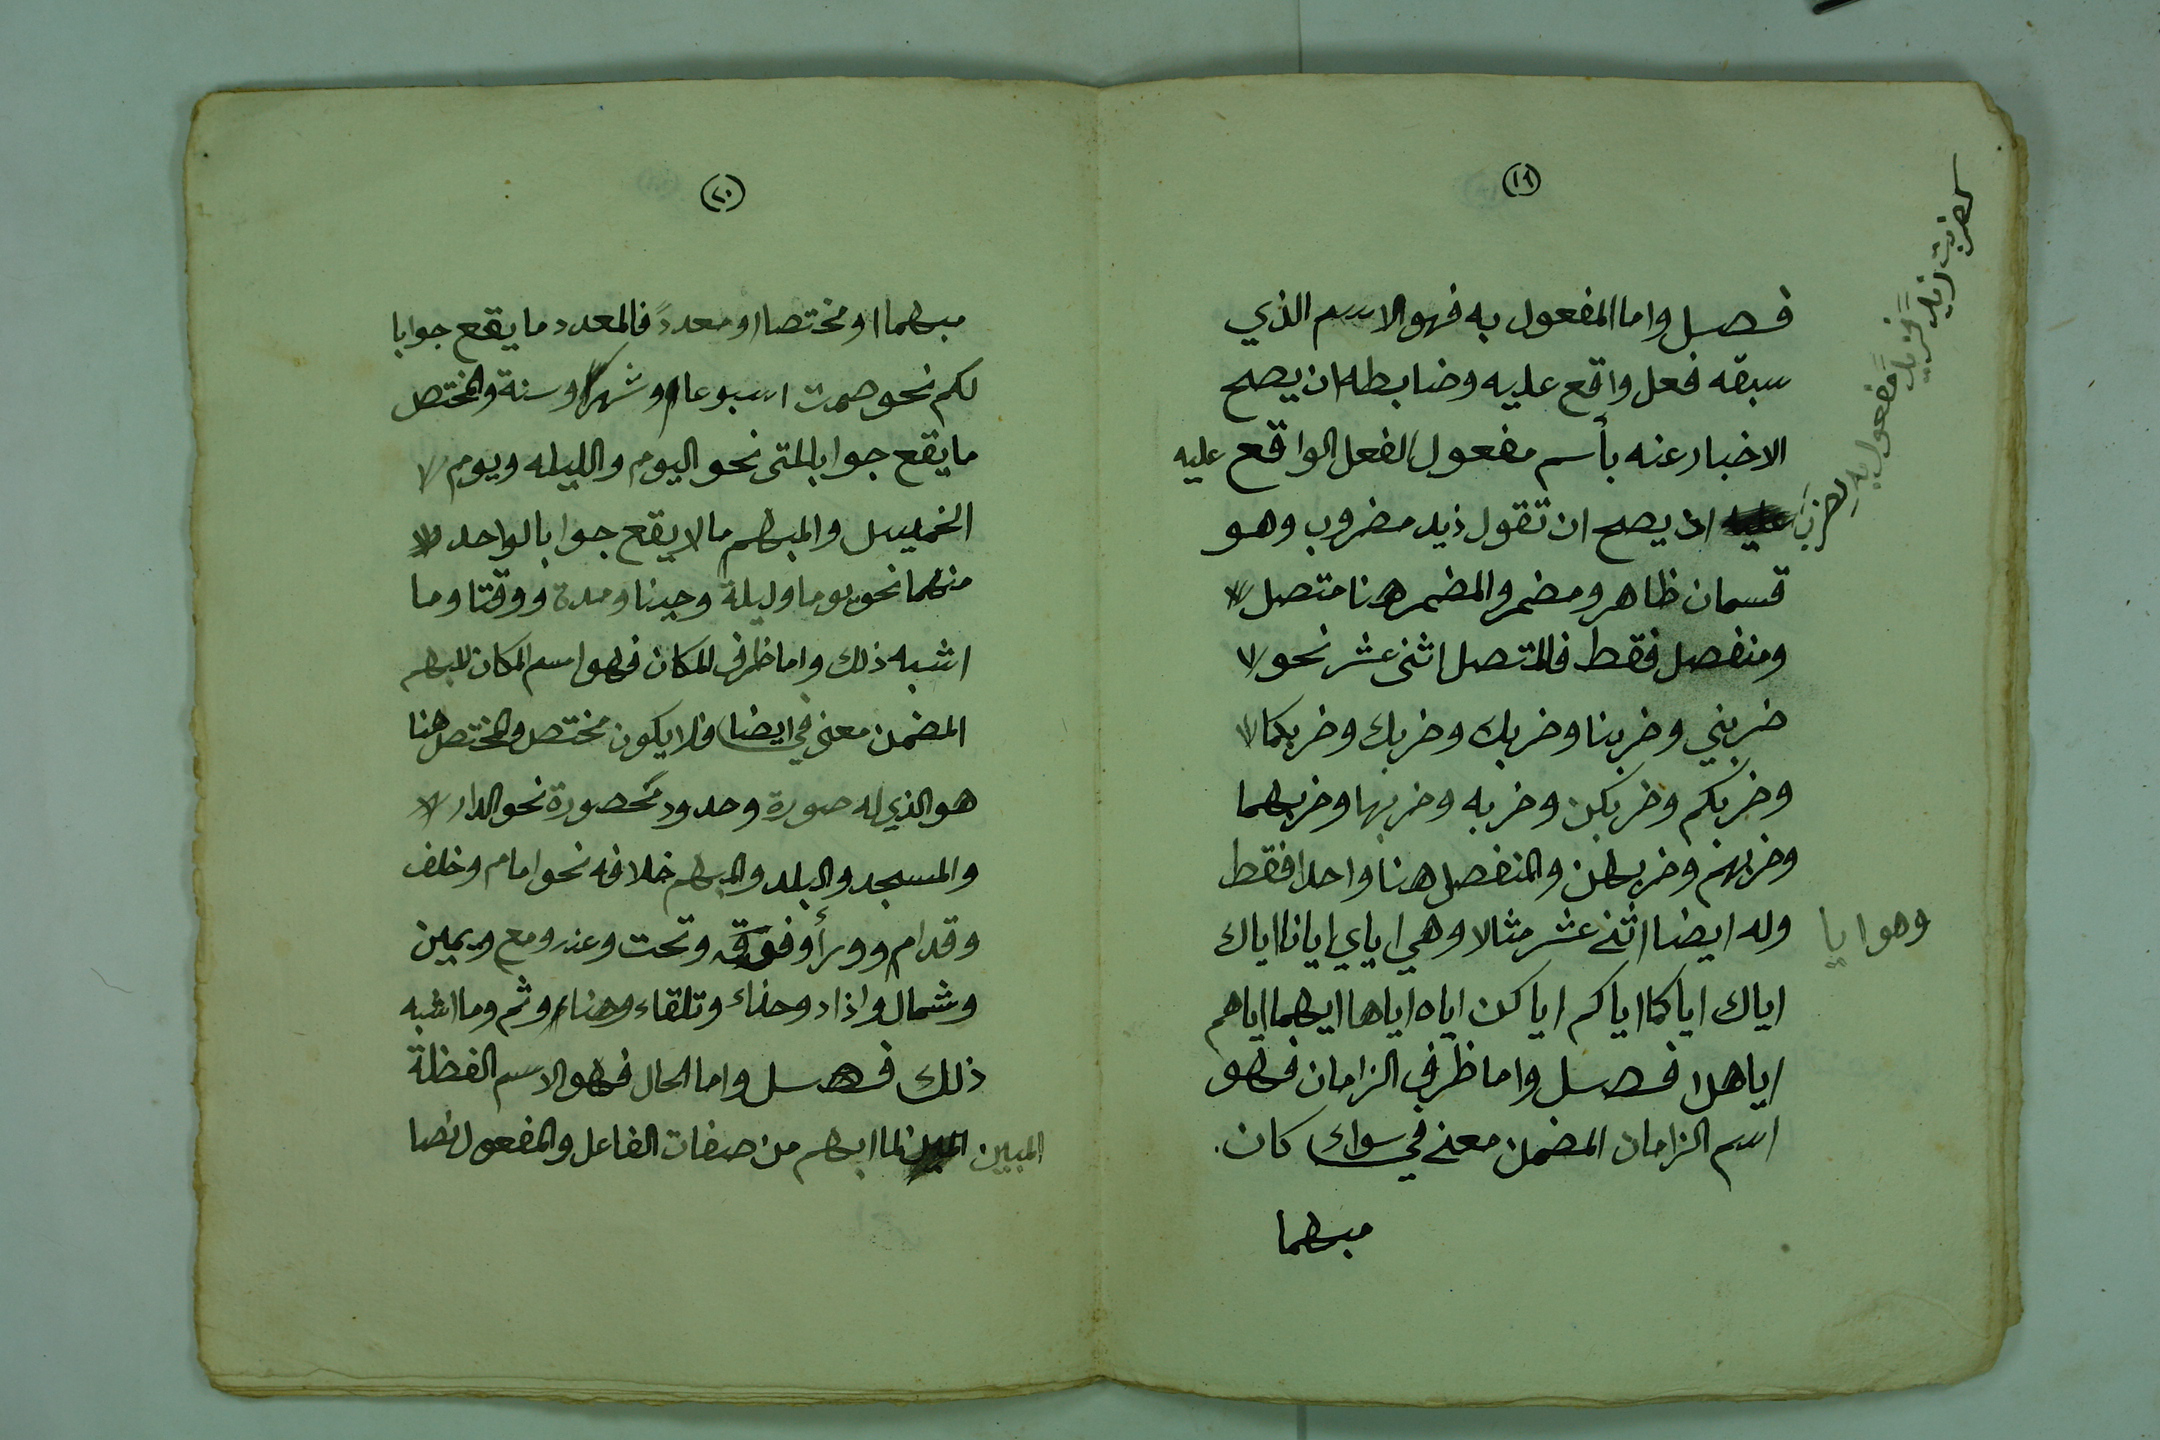 (١٩)
فصل واما المفعول به فهو الاسم الذي
سبقه فعل واقع عليه وضابطه ان يصح
الاخبار عنه بأسم مفعول الفعل الواقع عليه
اذ يصح ان تقول زيد مضروب وهو
قسمان ظاهر ومضمر والمضمر هنا متصل
ومنفصل فقط فالمتصل اثنى عشر نحو
ضربني وضربنا وضربك وضربك وضربكما
وضربكم وضربكن وضربه وضربها وضربهما
وضربهم وضربهن والمنفصل هنا واحدا فقط
وهو ايا
وله ايضا اثنى عشر مثالا وهي اياي ايانا اياك
اياك اياكما اياكم اياكن اياه اياها ايهما اياهم
اياهن فصل واما ظرف الزامان فهو
اسم الزامان المضمن معنى في سواء كان.
مبهما
كضربت زيدًا فزيدًا مفعول به لضربت
(٢٠)
مبهما او مختصا او معددً فالمعدد ما يقع جوابا
لكم نحو صمت اسبوعا او شهرا او سنة والمختص
ما يقع جوابا لمتى نحو اليوم والليله ويوم
الخميس والمبهم ما لا يقع جوابا لواحد
منهما نحو يوما وليلة وحينا ومدة ووقتا وما
اشبه ذلك واما ظرف المكان فهو اسم المكان المبهم
المضمن معنى في ايضا ولا يكون مختص والمختص هنا
هو الذي له صورة وحدود محصورة نحو الدار
والمسجد والبلد والمبهم خلافه نحو امام وخلف
وقدام وورأ وفوق وتحت وعند ومع ويمين
وشمال واذاء وحذاء وتلقاء وهنا وثم وما اشبه
ذلك فصل واما الحال فهو الاسم الفظلة
المبين لما ابهم من صفات الفاعل والمفعول نصا